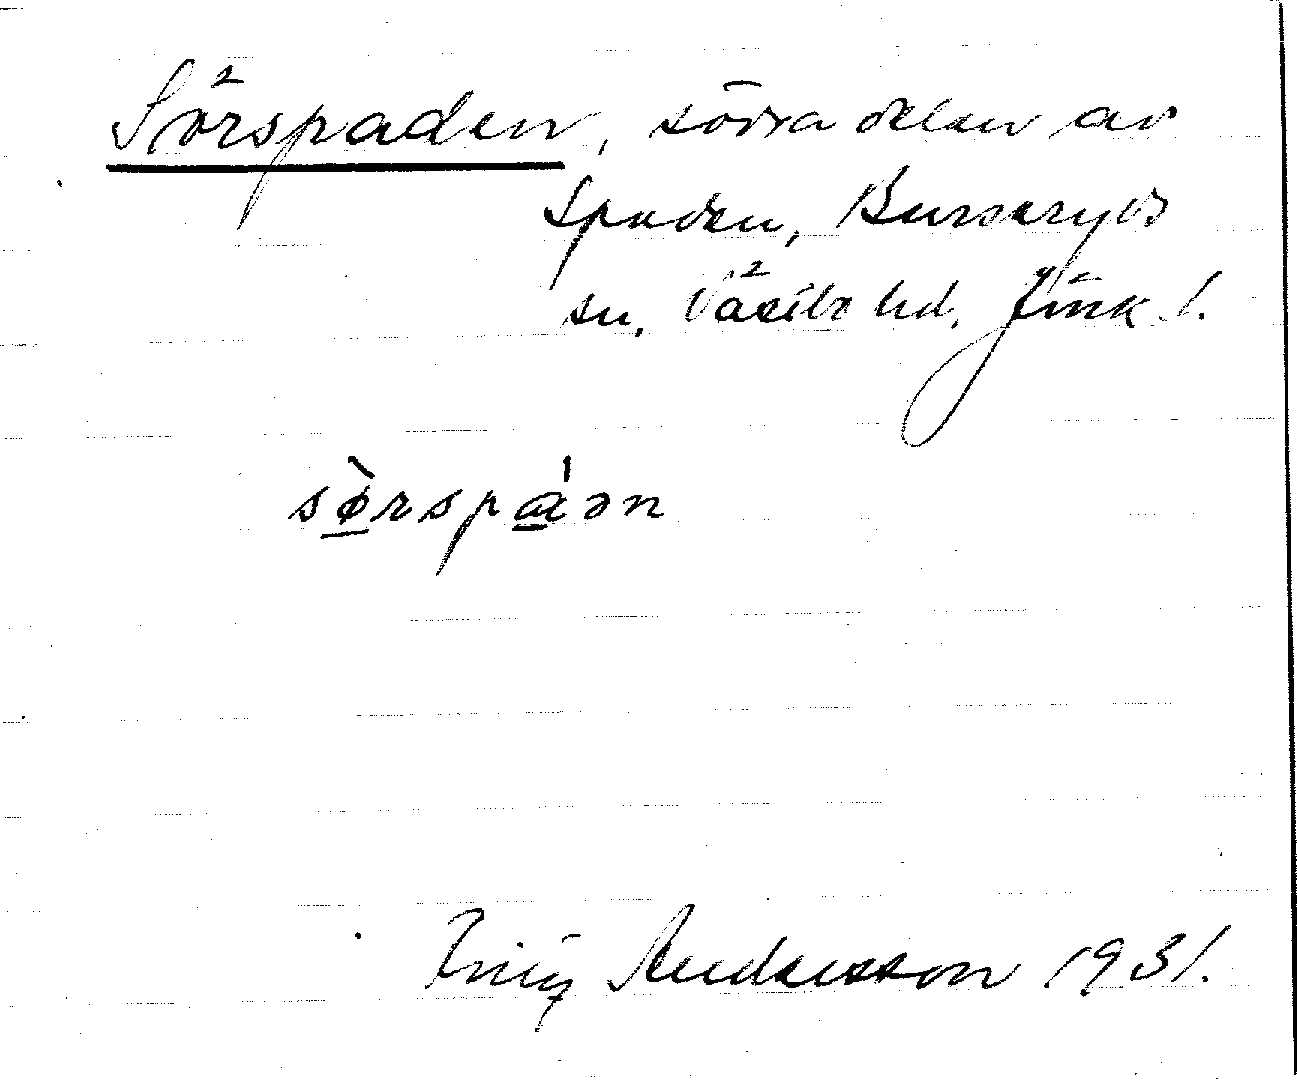 Sörspaden, södra delen av
Spaden, Burseryds
sn, Västbo hd, Jönk. l.
sø̀rspáən
Fritz Andersson 1931.